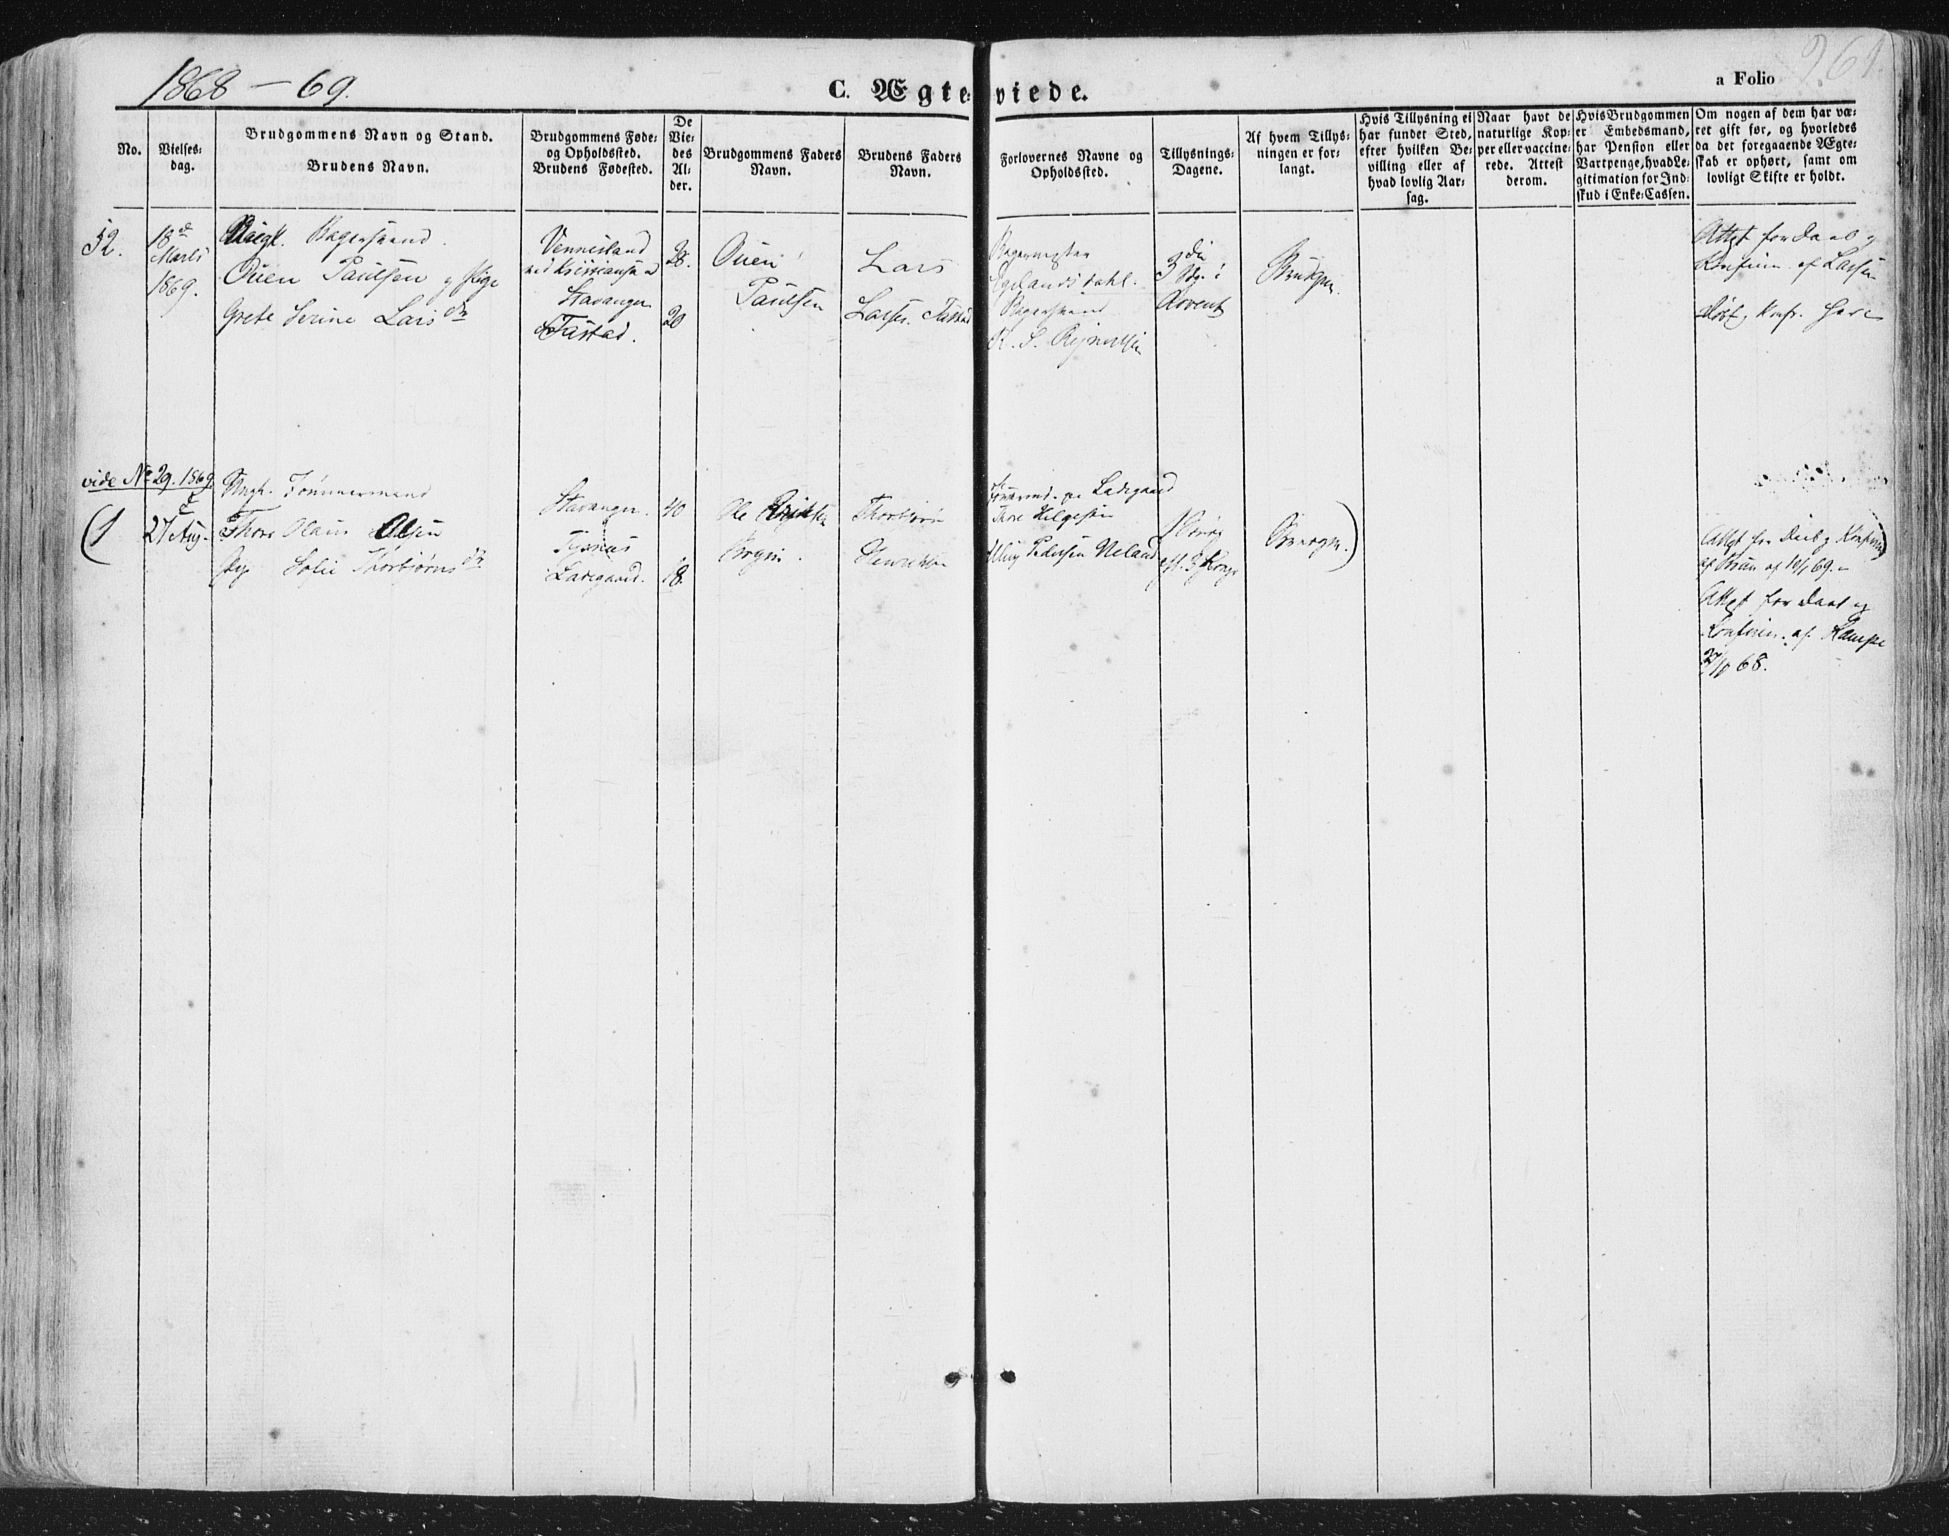 1868 – 69.
C. Ægteviede.
a Folio 261.
No.
Vielses-
dag.
Brudgommens Navn og Stand.
Brudens Navn.
Brudgommens Føde-
og Opholdssted.
Brudens Fødested.
De
Vie-
des
Al-
der.
Brudgommens Faders
Navn.
Brudens Faders
Navn.
Forlovernes Navne og
Opholdssted.
Tillysnings-
Dagene.
Af hvem Tillys-
ningen er for-
langt.
Hvis Tillysning ei
har fundet Sted,
efter hvilken Be-
villing eller af
hvad lovlig Aar-
sag.
Naar havt de
naturlige Kop-
per eller vaccine-
rede. Attest
derom.
Hvis Brudgommen
er Embedsmand,
har Pension eller
Vartpenge, hvad Le-
gitimation for Ind-
skud i Enke-Cassen.
Om nogen af dem har væ-
ret gift før, og hvorledes
da det foregaaende Ægte-
skab er ophørt, samt om
lovligt Skifte er holdt.
52.
18de
Marts
1869.
Bagersvend.
Ouen Paulsen og Pige
Grete Serine Larsdr
Vennesland
ved Kristiansand
Stavanger
Tastad.
28.
20
Ouen
Paulsen
Lars
Larsen Tastad
Bagermester
Egelandsdahl.
Bagersvend
3die
Sdg i
Advent
Brudgm.
Attest for Daab og
Konfirm. af Larsen
Døbt og Konf. her
vide No 29. 1869.
(1
27 Aug.
Ungk. Tømmermand
Thore Olaus Olsen
Pige Solie Thorbiørnsdr
Stavanger.
Tysnæs
Ladegaard.
40
18.
Ole
Thorbiørn
Henriksen
Ladegaard
Thore Helgesen
Pedersen Neland
Attest for Daab og Konfirm)
af 69.
Attest for Daab og
Konfirm. af
68.